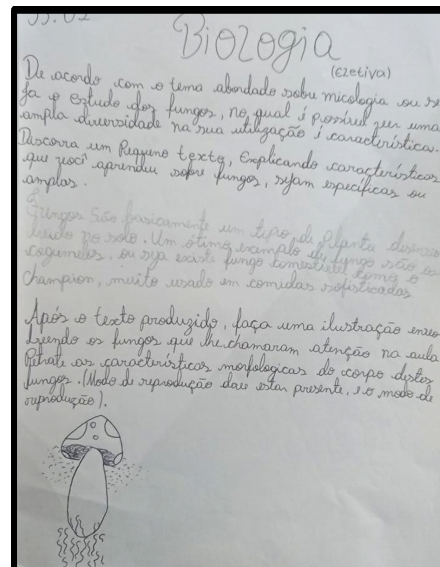 Biologia
(Eletiva)
De acordo com o tema abordado sobre micologia ou se
ja o estudo dos fungos, no qual é possível ver uma
ampla diversidade na sua utilização é característica.
Discorra um Pequeno texto, Explicando características
que você aprendeu sobre fungos, sejam específicas ou
amplas.
Fungos São basicamente um tipo de Planta desenvo
lvido no solo. Um ótimo exemplo de fungo são os
cogumelos, ou seja existe fungo comestível como o
champion, muito usado em comidas sofisticadas
Após o texto produzido, faça uma ilustração envo
lvendo os fungos que lhe chamaram atenção na aula
Retrate as características morfologicas do corpo destes
fungos. (Modo de reprodução deve estar presente, e o modo de
reprodução).